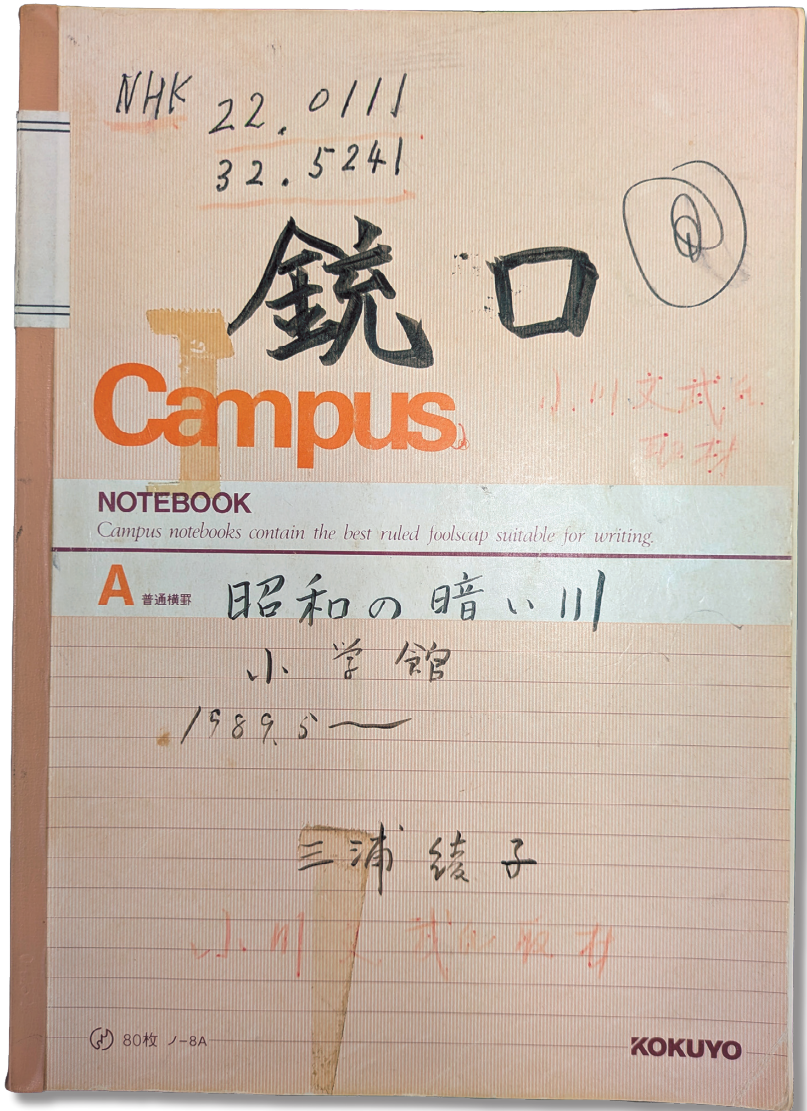 NHK 22.0111
32.5241
銃口
Campus
小川文武氏
取材
NOTEBOOK
Campus notebooks contain the best ruled foolscap suitable for writing.
A 普通横罫 昭和の暗い川
小学館
1989.5〜
三浦綾子
小川文武氏取材
80枚 ノ-8A
KOKUYO